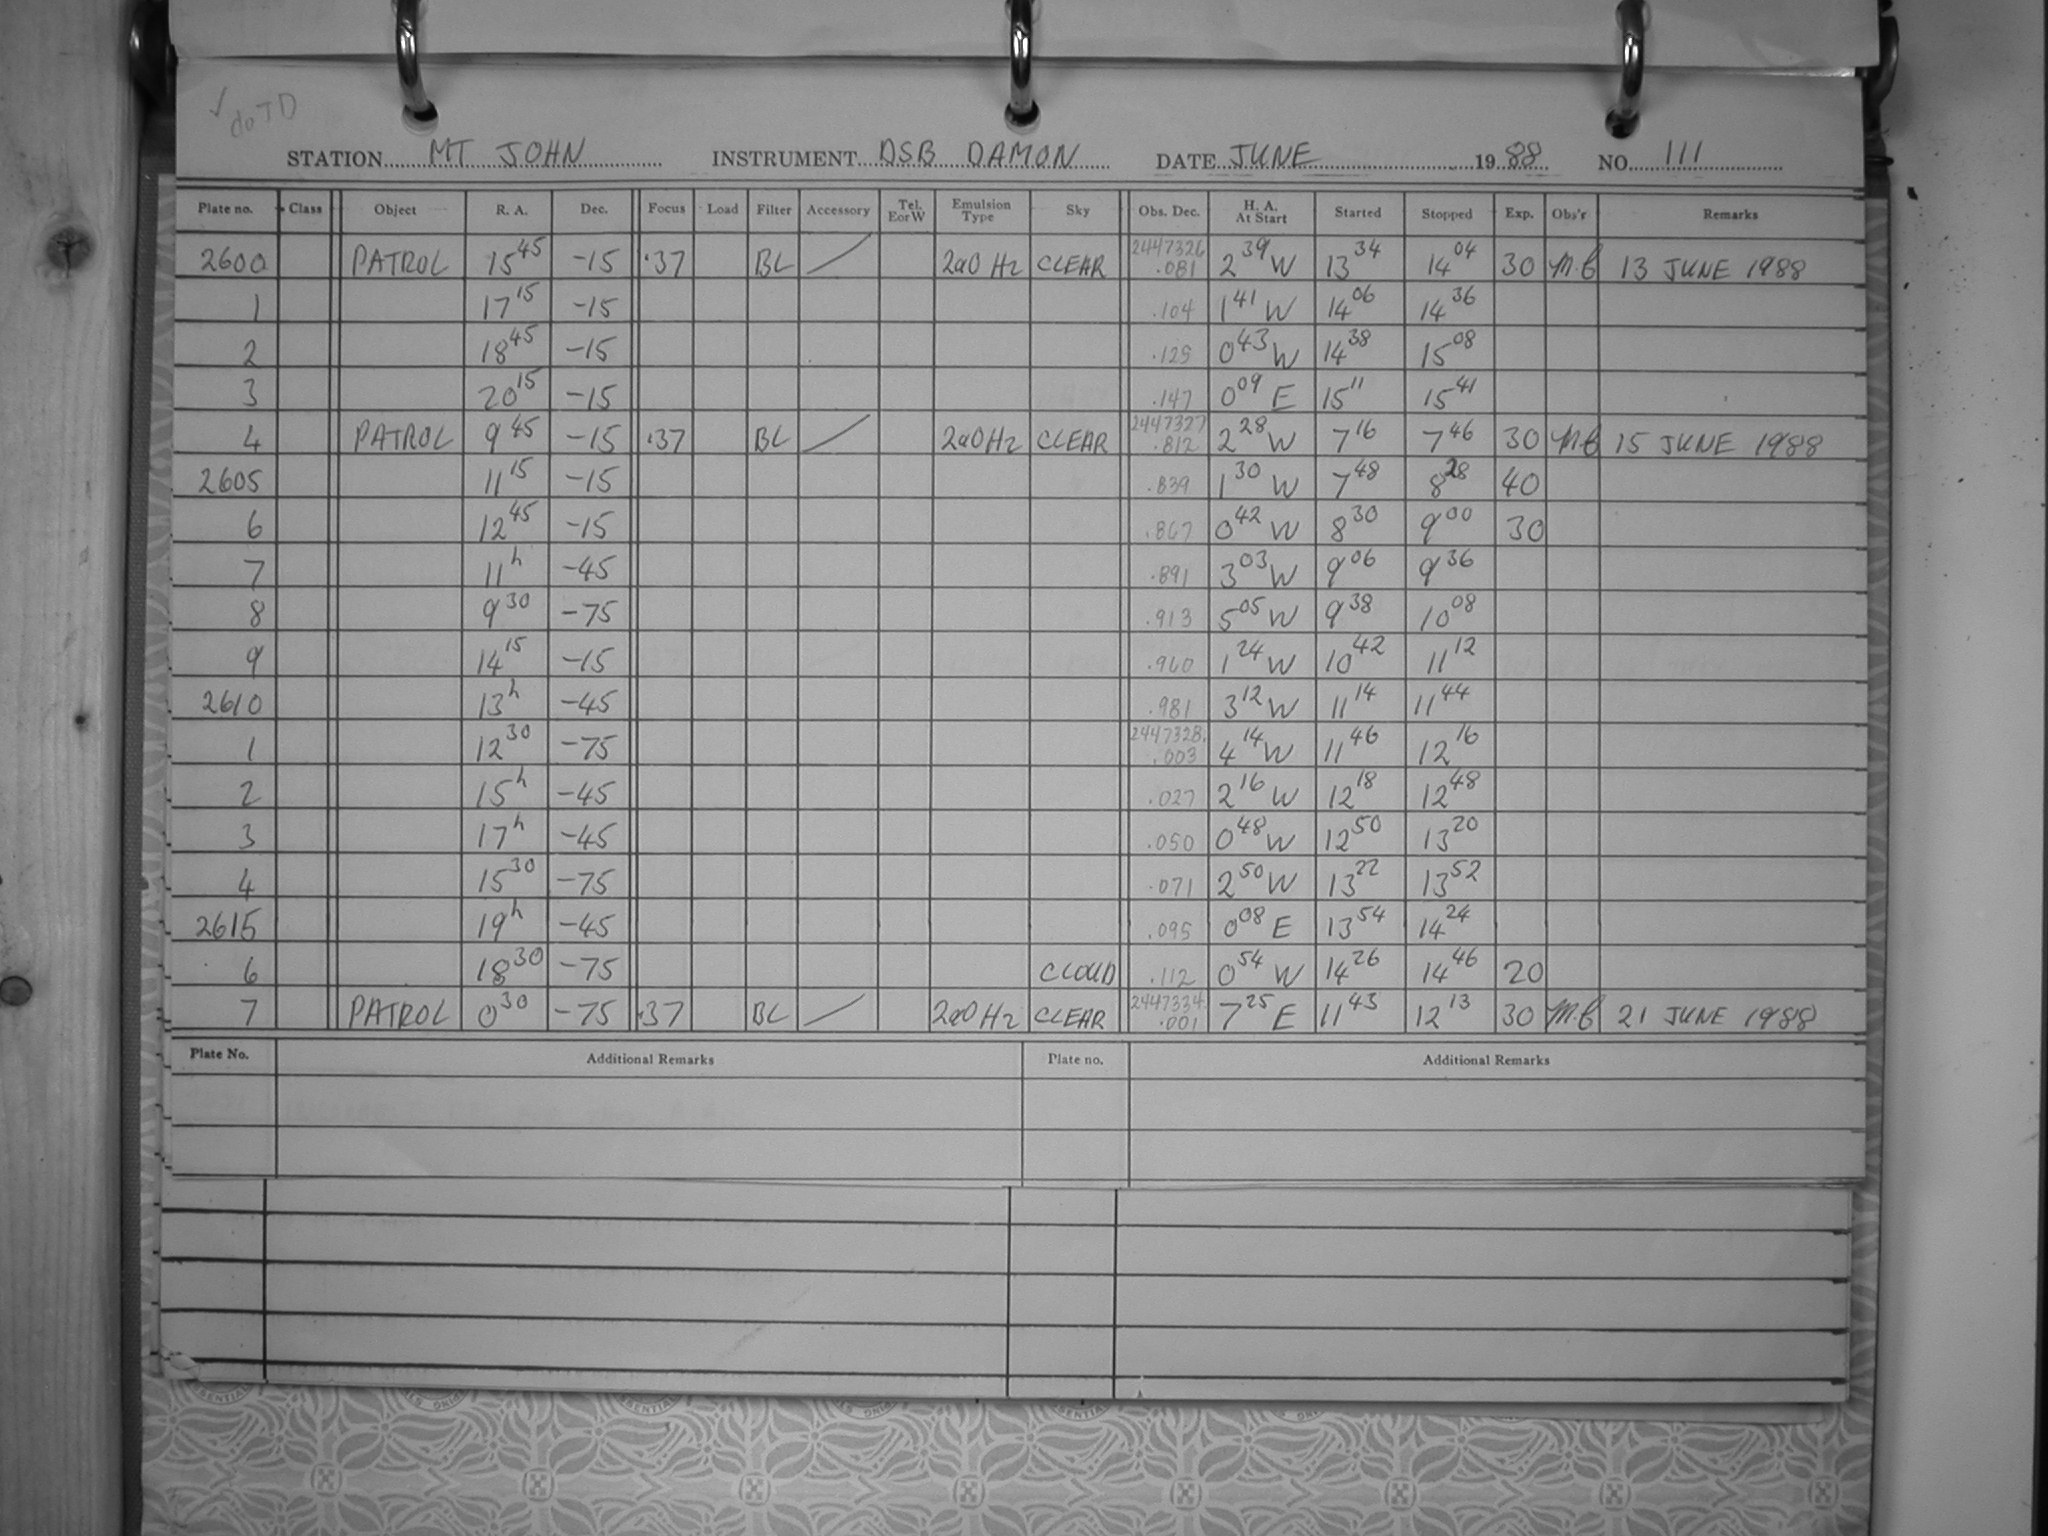 ✓ do JD
STATION MT JOHN INSTRUMENT DSB DAMON DATE JUNE 1988 NO. 111
Plate no. Class Object R. A. Dec. Focus Load Filter Accessory Tel. E or W Emulsion Type Sky Obs. Dec. H. A. At Start Started Stopped Exp. Obs'r Remarks
2600 PATROL 15 45 -15 .37 BL / 2a0 Hz CLEAR 2447326 .081 2 39 W 13 34 14 04 30 M.C 13 JUNE 1988
1 17 15 -15 .104 1 41 W 14 06 14 36
2 18 45 -15 .125 0 43 W 14 38 15 08
3 20 15 -15 .147 0 09 E 15 11 15 41
4 PATROL 9 45 -15 .37 BL / 2a0 Hz CLEAR 2447327 .812 2 28 W 7 16 7 46 30 M.C 15 JUNE 1988
2605 11 15 -15 .839 1 30 W 7 48 8 28 40
6 12 45 -15 .867 0 42 W 8 30 9 00 30
7 11 h -45 .891 3 03 W 9 06 9 36
8 9 30 -75 .913 5 05 W 9 38 10 08
9 14 15 -15 .960 1 24 W 10 42 11 12
2610 13 h -45 .981 3 12 W 11 14 11 44
1 12 30 -75 2447328. .003 4 14 W 11 46 12 16
2 15 h -45 .027 2 16 W 12 18 12 48
3 17 h -45 .050 0 48 W 12 50 13 20
4 15 30 -75 .071 2 50 W 13 22 13 52
2615 19 h -45 .095 0 08 E 13 54 14 24
6 18 30 -75 CLOUD .112 0 54 W 14 26 14 46 20
7 PATROL 0 30 -75 .37 BL / 2a0 Hz CLEAR 2447334. .001 7 25 E 11 43 12 13 30 M.C 21 JUNE 1988
Plate No. Additional Remarks Plate no. Additional Remarks